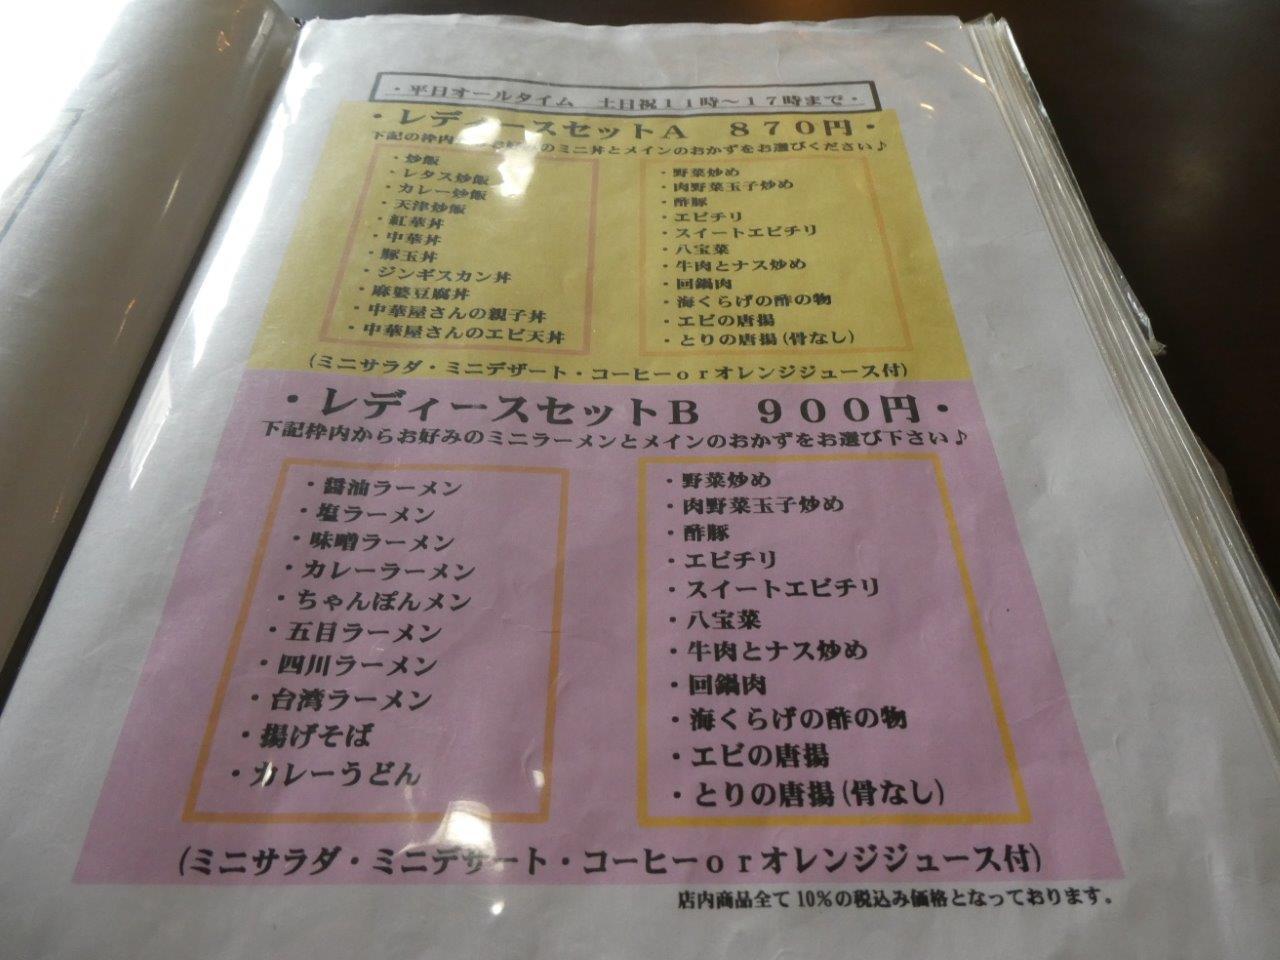 ・平日オールタイム　土日祝１１時～１７時まで・
・レディースセットＡ　８７０円・
下記の枠内 お好みのミニ丼とメインのおかずをお選びください♪
・炒飯
・レタス炒飯
・カレー炒飯
・天津炒飯
・紅華丼
・中華丼
・豚玉丼
・ジンギスカン丼
・麻婆豆腐丼
・中華屋さんの親子丼
・中華屋さんのエビ天丼
・野菜炒め
・肉野菜玉子炒め
・酢豚
・エビチリ
・スイートエビチリ
・八宝菜
・牛肉とナス炒め
・回鍋肉
・海くらげの酢の物
・エビの唐揚
・とりの唐揚(骨なし)
(ミニサラダ・ミニデザート・コーヒーｏｒオレンジジュース付)
・レディースセットＢ　９００円・
下記枠内からお好みのミニラーメンとメインのおかずをお選び下さい♪
・醤油ラーメン
・塩ラーメン
・味噌ラーメン
・カレーラーメン
・ちゃんぽんメン
・五目ラーメン
・四川ラーメン
・台湾ラーメン
・揚げそば
・カレーうどん
・野菜炒め
・肉野菜玉子炒め
・酢豚
・エビチリ
・スイートエビチリ
・八宝菜
・牛肉とナス炒め
・回鍋肉
・海くらげの酢の物
・エビの唐揚
・とりの唐揚(骨なし)
(ミニサラダ・ミニデザート・コーヒーｏｒオレンジジュース付)
店内商品全て10%の税込み価格となっております。